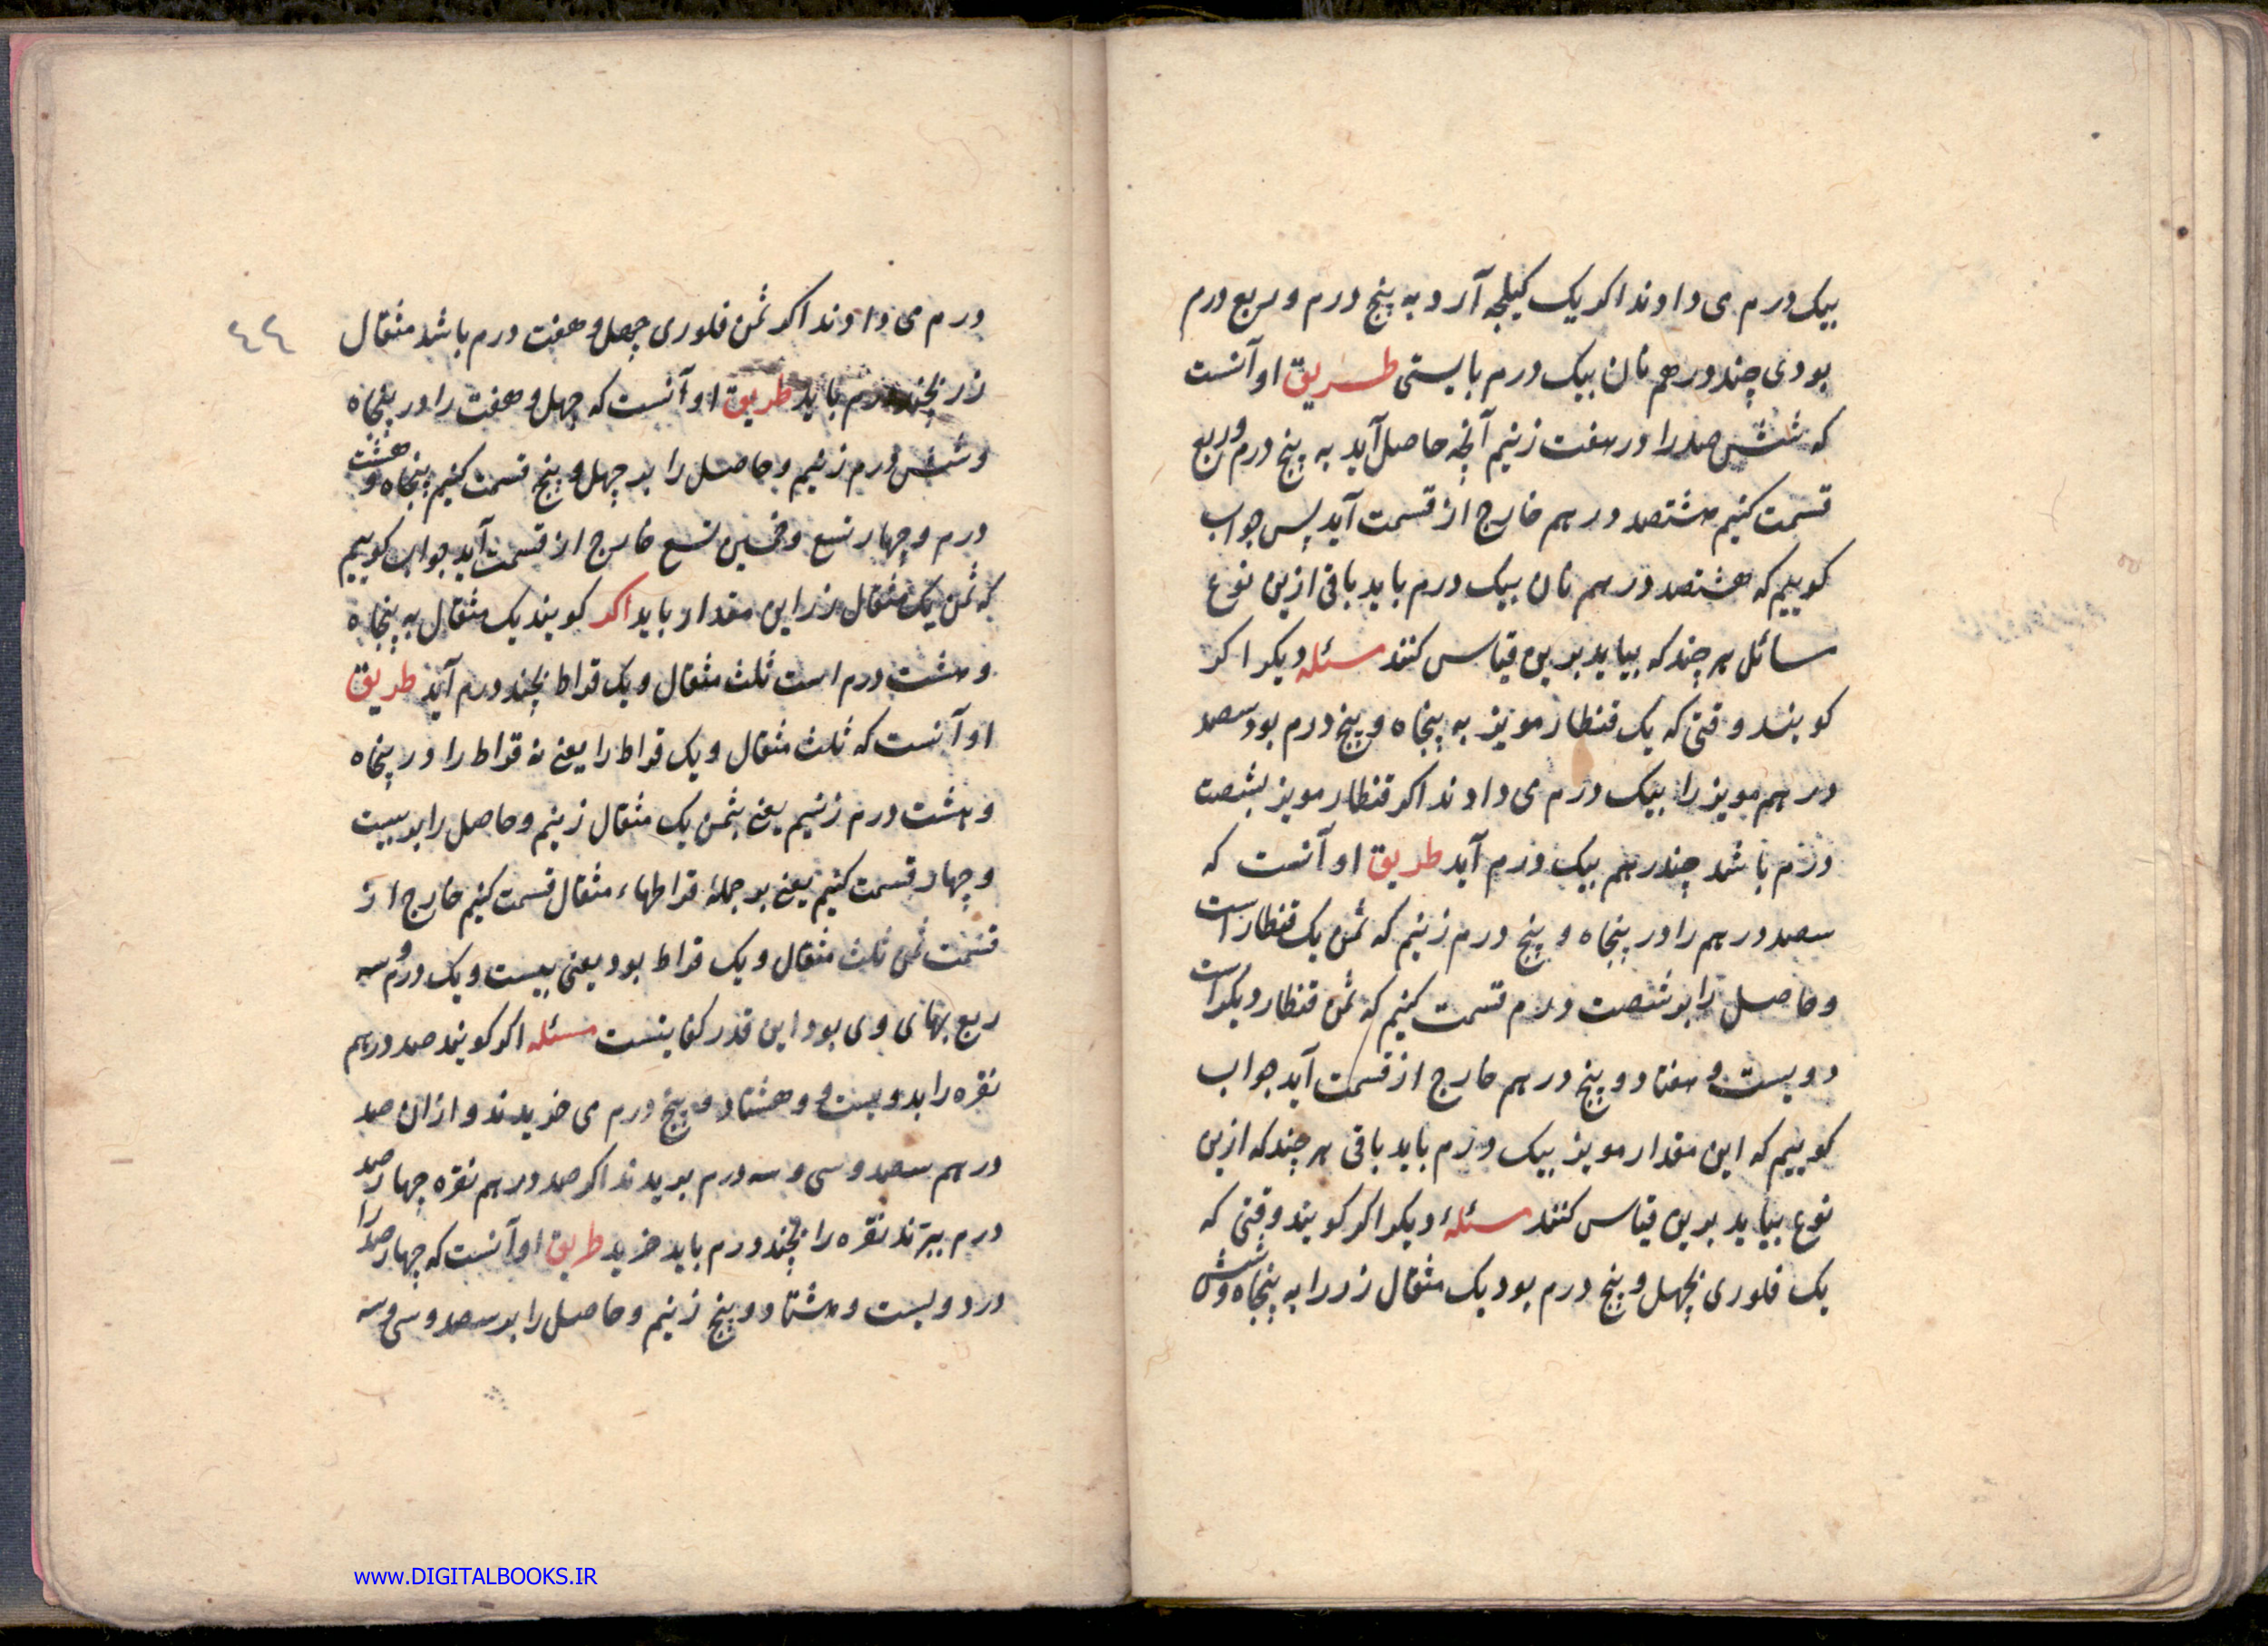 بیک درم می دادند اکر یک کیلجه آرد به پنج درم و ربع درم
بودی چند درهم نان بیک درم بایستی طریق او آنست
که شش صد را در هفت زنیم آنچه حاصل آید به پنج درم و ربع
قسمت کنیم هشتصد درهم خارج از قسمت آید پس جواب
کوییم که هشتصد درهم نان بیک درم باید باقی ازین نوع
مسائل هر چند که بیاید برین قیاس کنند مسئله دیکر اکر
کویند وقتی که یک قنطار مویز به پنجاه و پنج درم بود سصد
درهم مویز را بیک درم می دادند اکر قنطار مویز بشصت
درم باشد چند درهم بیک درم آید طریق او آنست که
سصد درهم را در پنجاه و پنج درم زنیم که ثمن یک قنطار است
و حاصل را بر شصت درم قسمت کنیم که ثمن قنطار دیکر است
دویست و هفتاد و پنج درهم خارج از قسمت آید جواب
کوییم که این مقدار مویز بیک درم باید باقی هر چند که ازین
نوع بیاید برین قیاس کنند مسئلهٔ دیکر اکر کویند وقتی که
یک فلوری بچهل و پنج درم بود یک مثقال زر را به پنجاه و شش
٤٤
درم می دادند اکر ثمن فلوری چهل و هفت درم باشد مثقال
زر بچند درم باید طریق او آنست که چهل و هفت را در پنجاه
و شش درم زنیم و حاصل را بر چهل و پنج قسمت کنیم پنجاه و هشت
درم و چهار تسع و خمس تسع خارج از قسمت آید جواب کوییم
که ثمن یک مثقال زر این مقدار باید اکر کویند یک مثقال به پنجاه
و هشت درم است ثلث مثقال و یک قراط بچند درم آید طریق
او آنست که ثلث مثقال و یک قراط را یعنی نه قراط را در پنجاه
و هشت درم زنیم یعنی بثمن یک مثقال زنیم و حاصل را بر بیست
و چهار قسمت کنیم یعنی بر جملهٔ قراطهاء مثقال قسمت کنیم خارج از
قسمت ثمن ثلث مثقال و یک قراط بود یعنی بیست و یک درم و سه
ربع بهای وی بود این قدر کفایتست مسئله اکر کویند صد درهم
نقره را بدویست و هشتاد و پنج درم می خریدند و از ان صد
درهم سصد و سی و سه درم بریدند اکر صد درهم نقره چهار صد
درم ببرند نقره را بچند درم باید خرید طریق او آنست که چهار صد را
در دویست و هشتاد و پنج زنیم و حاصل را بر سصد و سی و سه
www.DIGITALBOOKS.IR